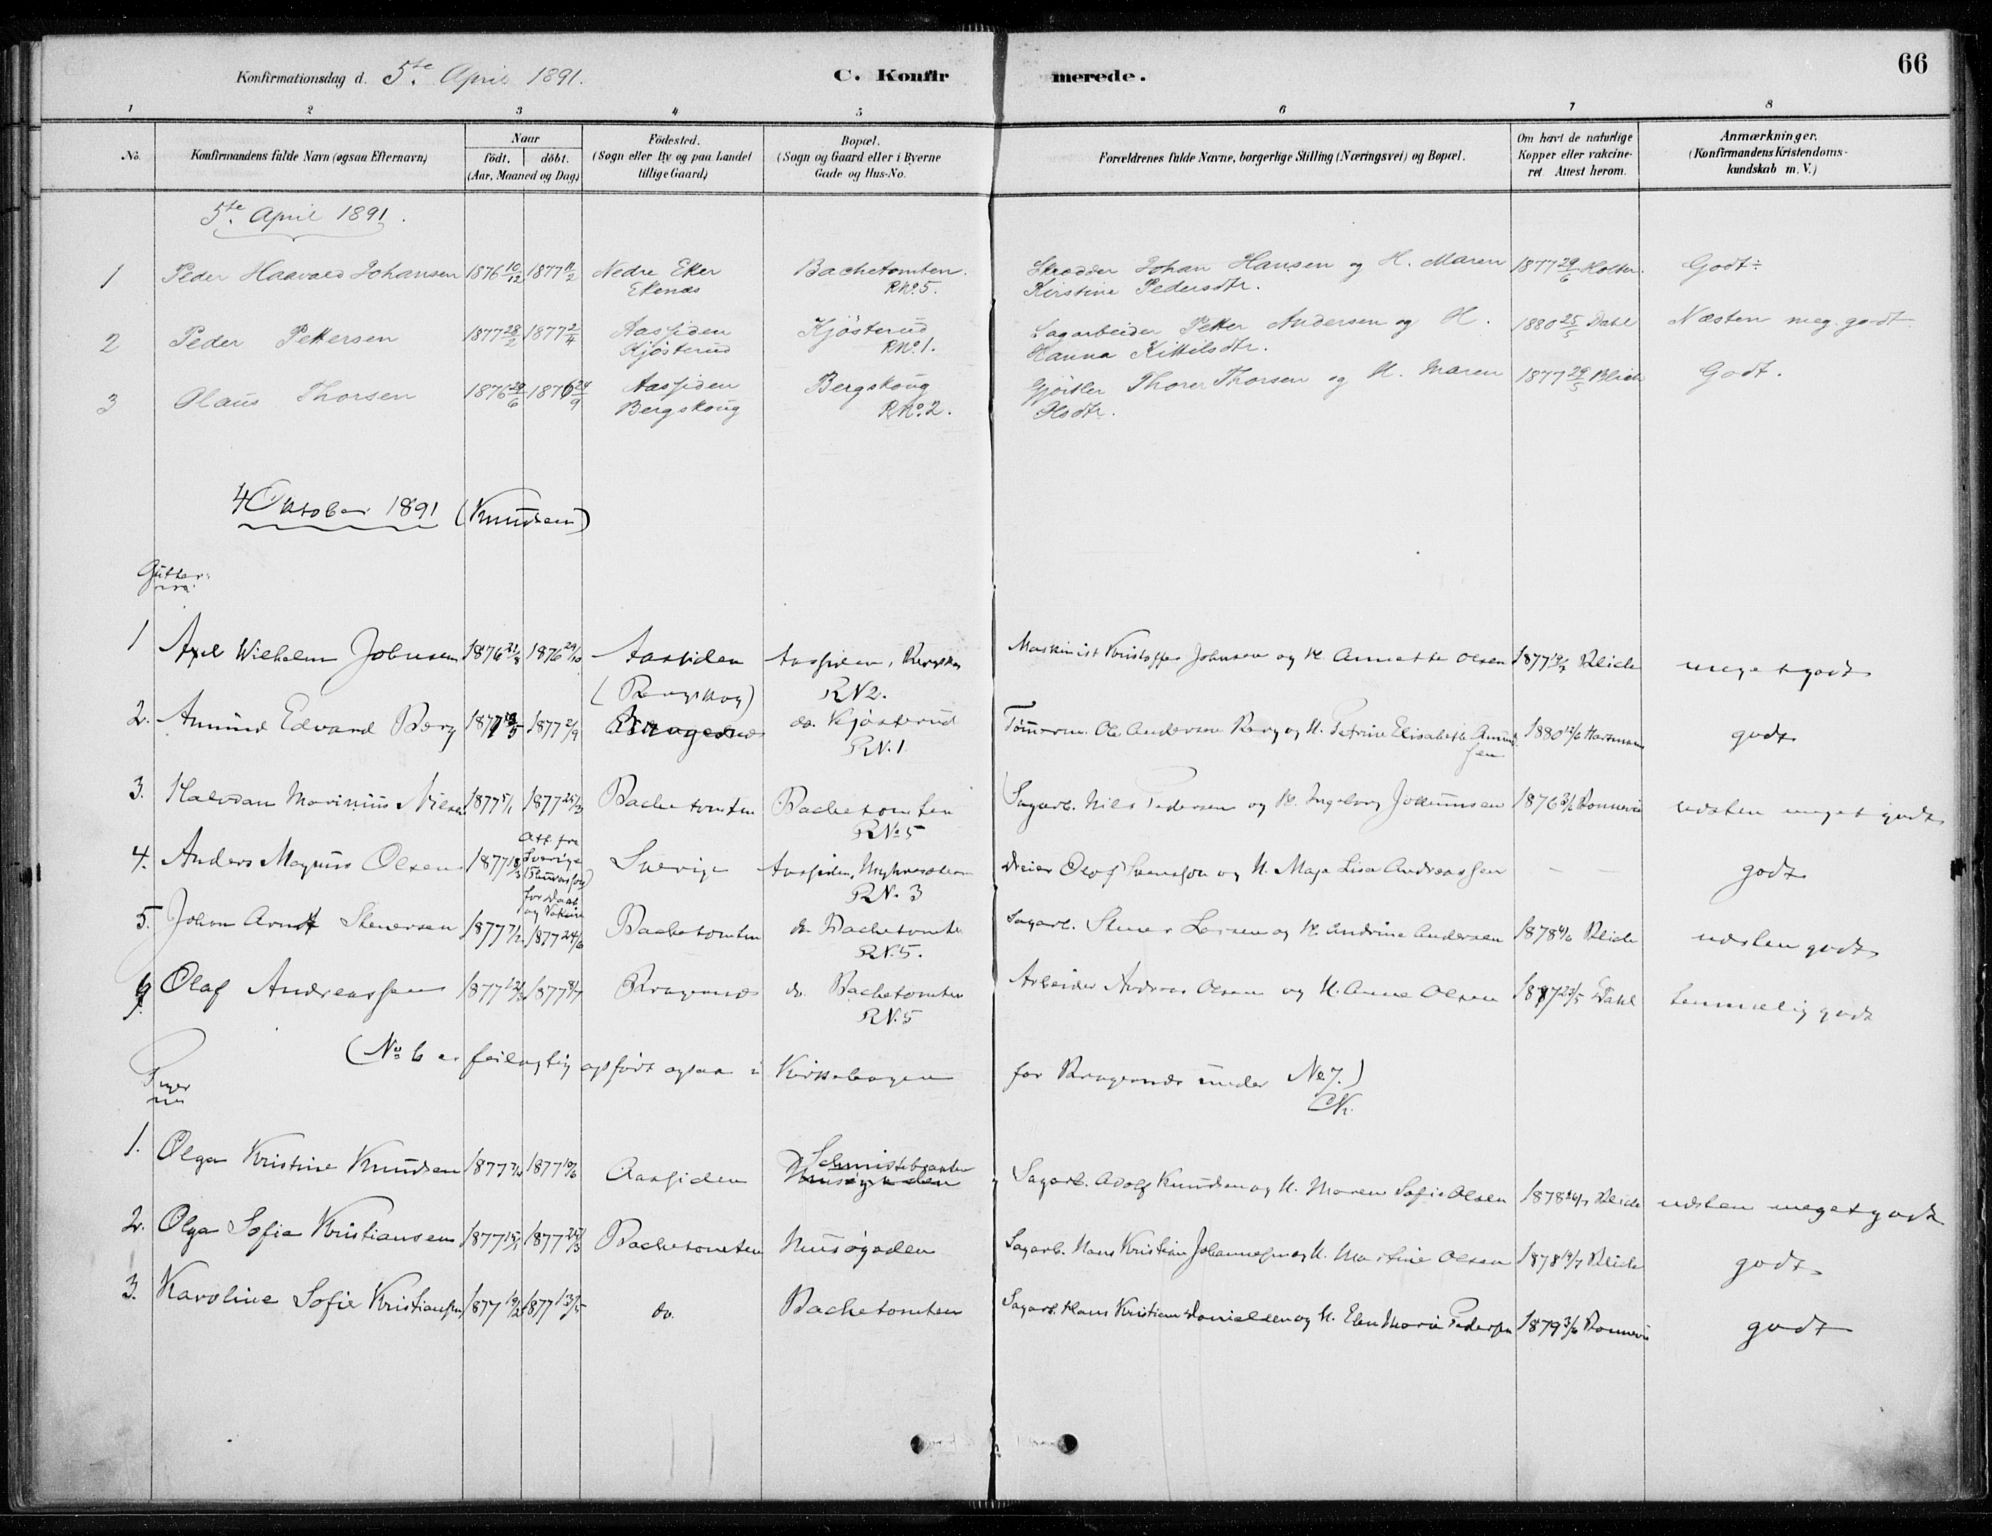 66
Konfirmationsdag d. 5te April 1891. C. Konfirmerede.
1 2 3 4 5 6 7 8
No. Konfirmandens fulde Navn (ogsaa Efternavn) Naar født. døbt. (Aar, Maaned og Dag) Fødested. (Sogn eller By og paa Landet tillige Gaard) Bopæl. (Sogn og Gaard eller i Byerne Gade og Hus-No. Forældrenes fulde Navne, borgerlige Stilling (Næringsvei) og Bopæl. Om havt de naturlige Kopper eller vakcineret Attest herom. Anmærkninger. (Konfirmandens Kristendomskundskab m. V.)
5te April 1891.
1 Peder Haavald Johansen 1876 10/12 1877 11/2 Nedre Eker Bachetomten. Skrædder Johan Hansen og H. Maren 1877 29/6 Holter. Godt÷
Ekenæs RNo. 5. Kirstine Pedersdtr.
2 Peder Pettersen 1877 28/2 1877 2/4 Aassiden Kjøsterud Sagarbeider Petter Andersen og H. 1880 25/5 Dahl Næsten meg. godt
Kjøsterud RNo. 1. Hanna Kittilsdtr.
3 Olaus Thorsen 1876 29/6 1876 24/9 Aassiden Bergskoug Gjörtler Thorer Thorsen og H. Maren 1877 29/5 Blich Godt.
Bergskoug RNo. 2. Olsdtr.
4 Oktober 1891 (Knudsen)
Gutter:
1 Axel Wilhelm Johnsen 1876 21/8 1876 29/10 Aassiden Aassiden, Bergskog Maskinist Kristoffer Johnsen og H. Annette Olsen 1877 Blich meget godt
(Bergskog) RN 2.
2. Amund Edvard Berg 1877 1877 2/9 Bragernæs do. Kjøsterud Tømmerm. Ole Andersen Berg og H. Petrine Elisabeth Amundsen 1880 12/6 Hartmann godt
RN. 1
3. Halvdan Marinius Nilsen 1877 5/1 1877 25/3 Bachetomten Bachetomten Sagarb. Nils Pedersen og H. Ingeborg Johannesen 1876 3/6 næsten meget godt
RNo 5
4. Anders Magnus Olsen 1877 18/3 Att fra Sverige for Daab og Vakcin Sverige Aassiden, Dreier Olof Svensson og H. Maja Lisa Andreassen — — godt
RN. 3
5. Johan Arndt Stenersen 1877 7/2 1877 24/6 Bachetomten do. Bachetomten Sagarb. Stener Larsen og H. Andrine Andersen 1878 4/6 Blich næsten godt
RN. 5.
6. Olaf Andreassen 1877 1877 8/7 Bragernæs do. Bachetomten Arbeider Andreas Olsen og H. Anne Olsen 1877 23/5 Dahl temmelig godt
RN. 5
(No 6 er feilagtig opført ogsaa i Kirkebogen for Bragernæs under No 7.)
CK.
Piger
1. Olga Kristine Knudsen 1877 1877 10/6 Aassiden Sagarb. Adolf Knudsen og H. Maren Sofie Olsen 1878 Blich næsten meget godt
2. Olga Sofie Kristiansen 1877 15/1 1877 25/3 Bachetomten Husøgaden Sagarb. Hans Kristian Johannesen og H. Martine Olsen 1878 19/7 Blich godt
3. Karoline Sofie Kristiansen 1877 19/2 1877 13/5 do. Bachetomten Sagarb. Hans Kristian Danielsen og H. Elen Marie Pedersen 1879 3/6 godt